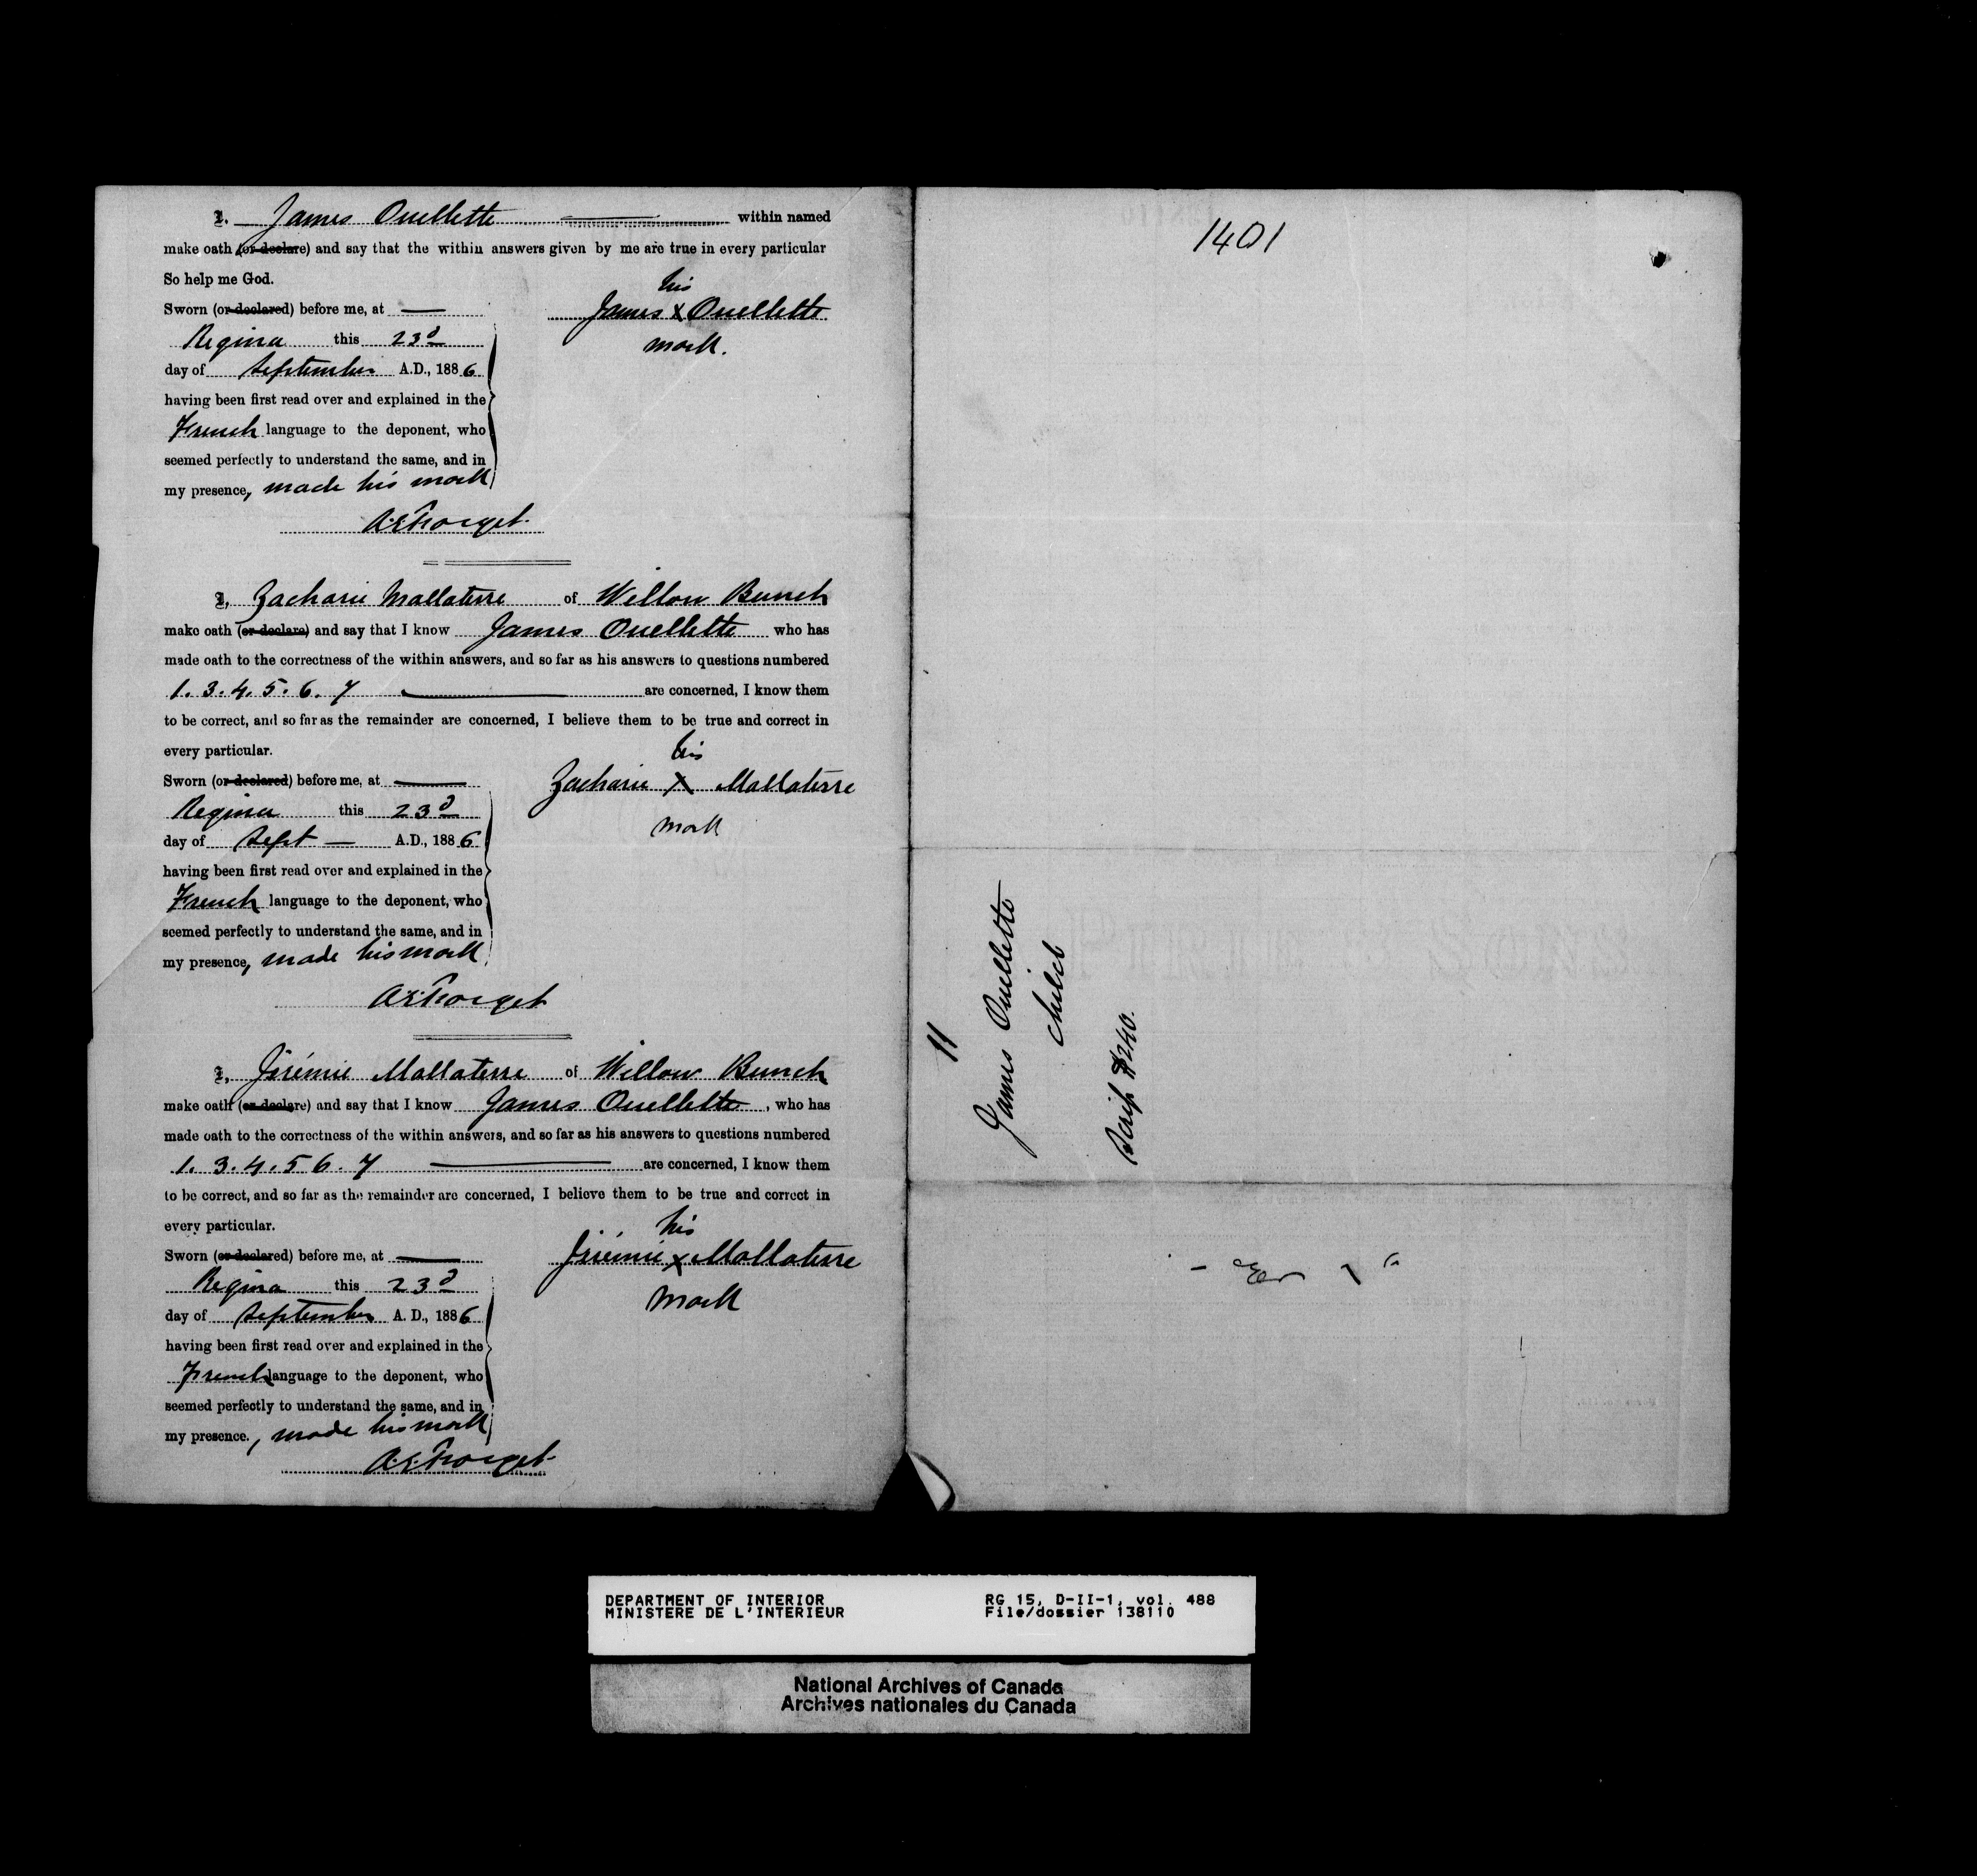 I, James Ouellette within named
make oath (or declare) and say that the within answers given by me are true in every particular
So help me God.
Sworn (or declared) before me, at
Regina this 23d
day of September A.D., 1886
having been first read over and explained in the
French language to the deponent, who
seemed perfectly to understand the same, and in
my presence, made his mark
his
James X Ouellette
mark.
A. E. Forget
I, Zacharie Mallaterre of Willow Bunch
make oath (or declare) and say that I know James Ouellette who has
made oath to the correctness of the within answers, and so far as his answers to questions numbered
1. 3. 4. 5. 6. 7 are concerned, I know them
to be correct, and so far as the remainder are concerned, I believe them to be true and correct in
every particular.
Sworn (or declared) before me, at
Regina this 23d
day of Sept A.D., 1886
having been first read over and explained in the
French language to the deponent, who
seemed perfectly to understand the same, and in
my presence, made his mark
his
Zacharie X Mallaterre
mark
A. E. Forget
I, Jérémie Mallaterre of Willow Bunch
make oath (or declare) and say that I know James Ouellette, who has
made oath to the correctness of the within answers, and so far as his answers to questions numbered
1. 3. 4. 5 6. 7 are concerned, I know them
to be correct, and so far as the remainder are concerned, I believe them to be true and correct in
every particular.
Sworn (or declared) before me, at
Regina this 23d
day of September A. D., 1886
having been first read over and explained in the
French language to the deponent, who
seemed perfectly to understand the same, and in
my presence., made his mark
his
Jérémie X Mallaterre
mark
A. E. Forget
1401
11
James Ouellette
child
Scrip $240.
DEPARTMENT OF INTERIOR RG 15, D-II-1, vol. 488
MINISTERE DE L'INTERIEUR File/dossier 138110
National Archives of Canada
Archives nationales du Canada